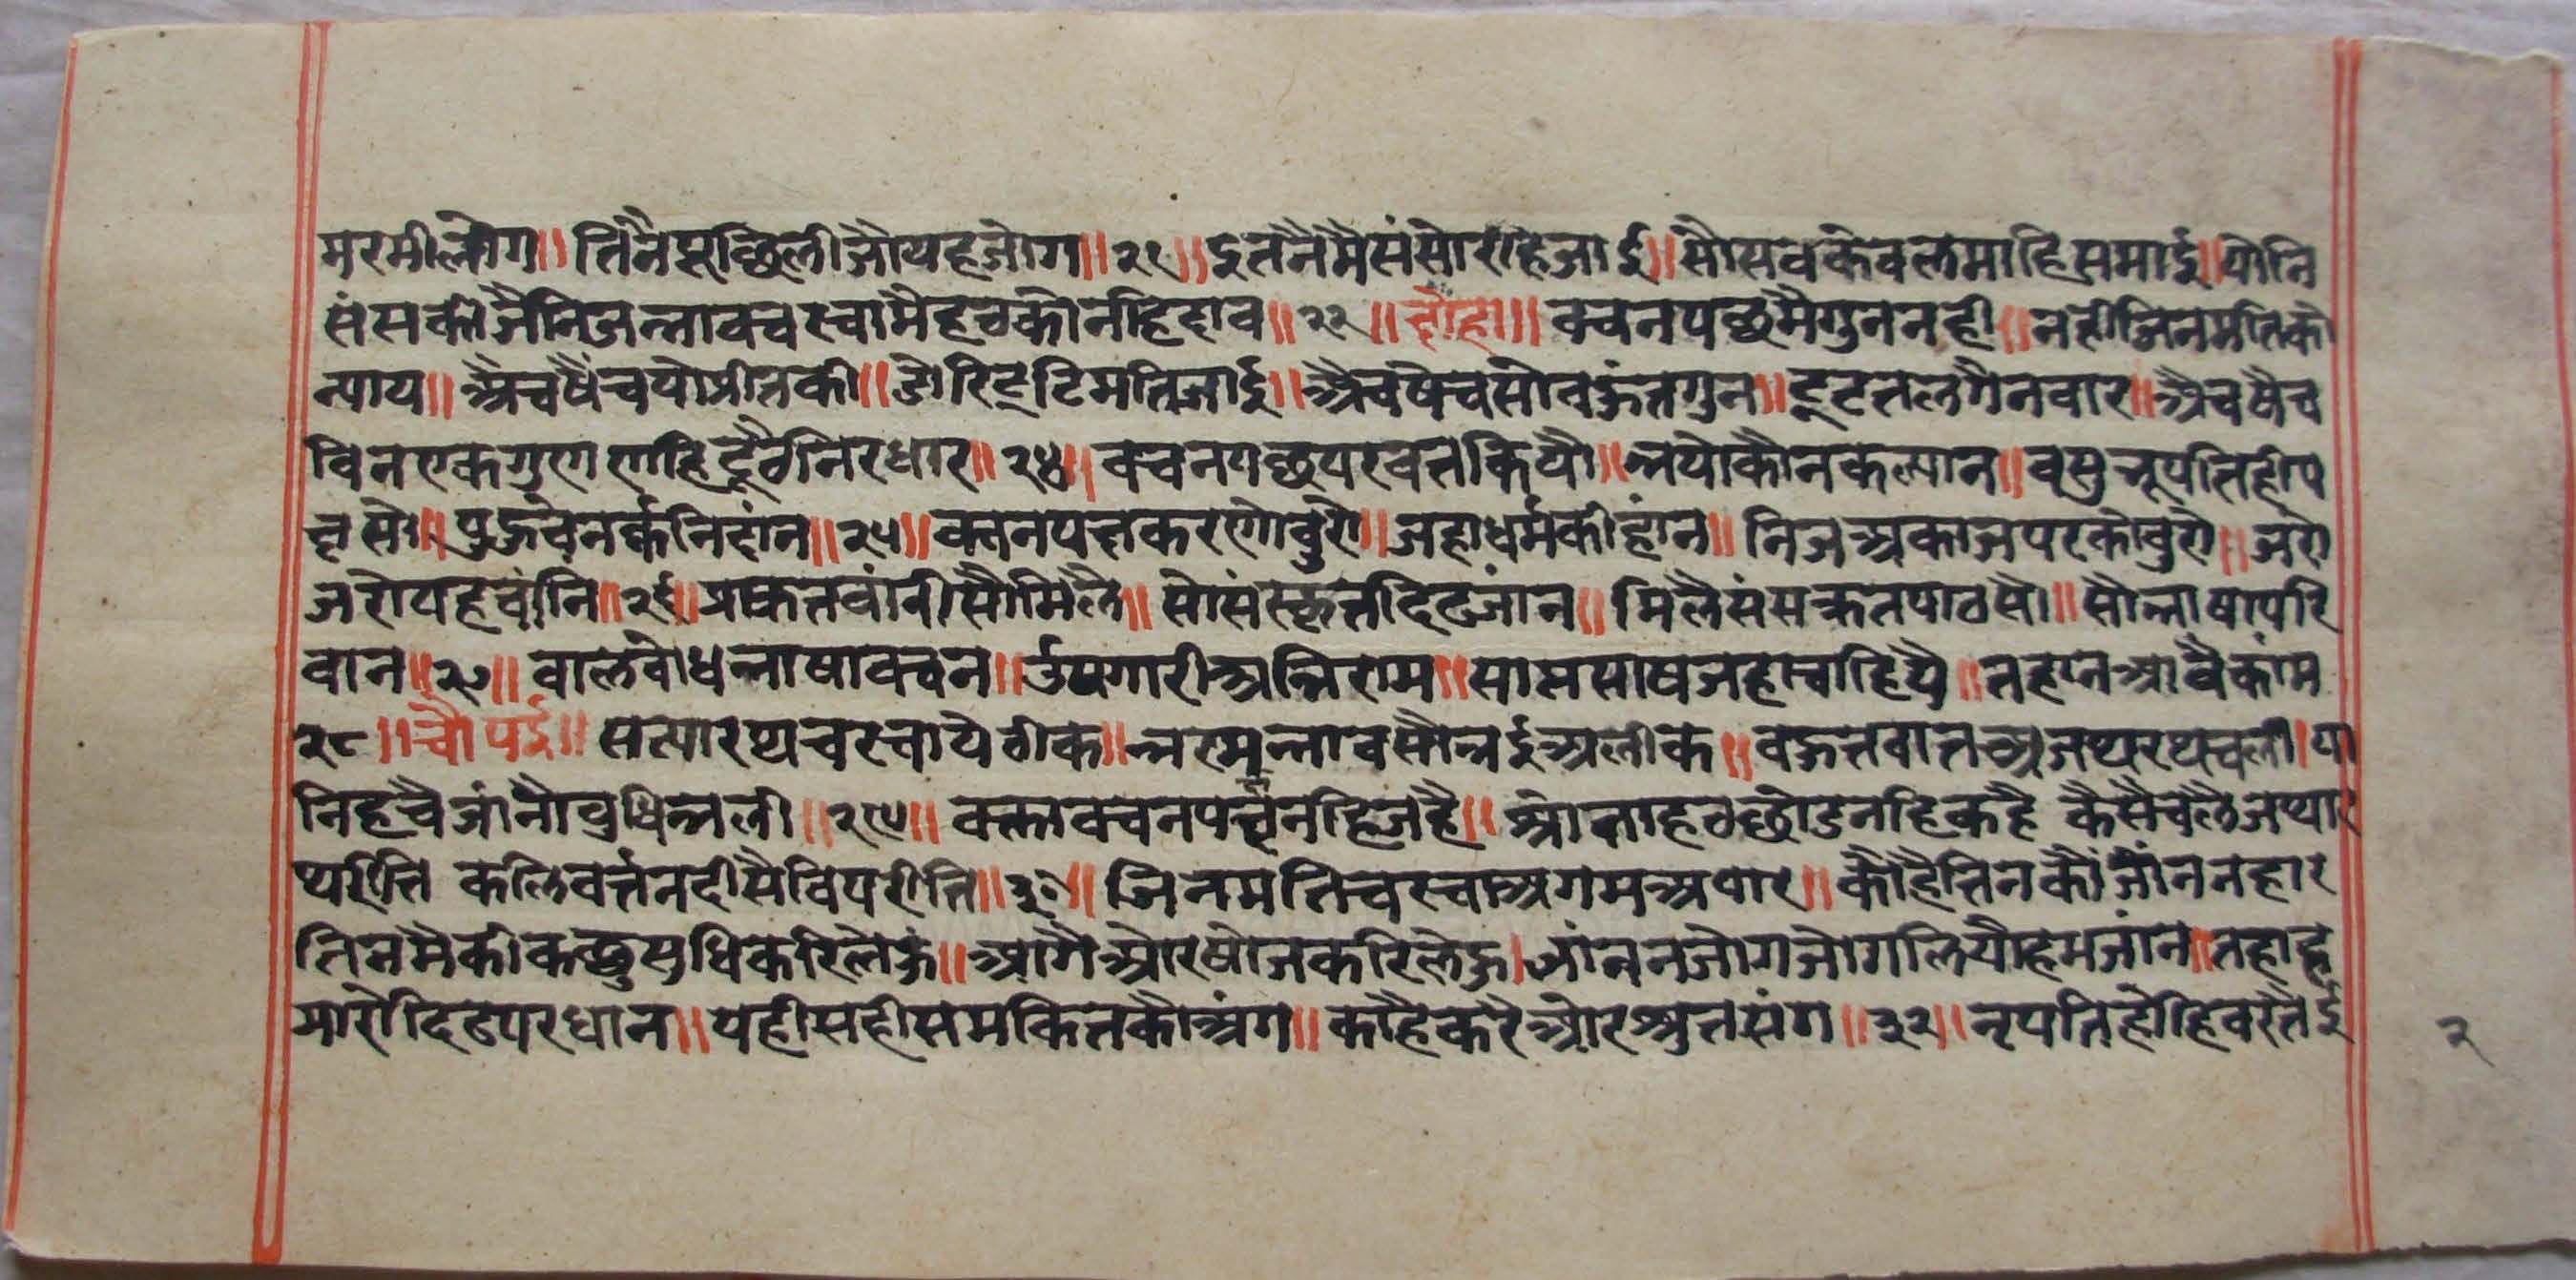 मरमी लोग॥ तिनै पूछि लीजौ यह जोग॥२१॥ इतनै मै संसो रहि जाई॥ सौ सव केवल माहि समाई॥ यौ नि
संसक जैनि जन्ता वच स्वामै हचकौ नहि दाव॥२२॥ दोहा॥ वचनपछ मै गुन नही॥ नही जिनमति कौ
न्याय॥ अैच षैच पो प्रीत की॥ डोरि टूटि मति जाई॥ अैच षैच सो वऊत गुन॥ टूटत लगै न वार॥ अैच षैच
विन एक गुण णहि टूवै निरधार॥२४॥ वचनपछ परवत कियौ॥ भयो कौन कल्यान॥ वसु भूपति ही प
छ सो॥ पुऊचे नर्क निदांन॥२५॥ वचनपछ करणो वुरो॥ जहा धर्म की हांन॥ निज अकाज पर को वुरो॥ जरो
जरो यह वांनि॥२६॥ प्राकत वांनी सौ मिलै॥ सो संस्कृत दिढ जांन॥ मिलै संसक्रत पाठ सो॥ सौ भाषा परि
वान॥२७॥ वालवोध भाषा वचन॥ उपगारी अभिराम॥ सास साष जहा चाहियै॥ तहा न आवै कांम
२८॥ चौपई॥ सत्यारथ्य च रचाये ठीक॥ भरम भाव सौ भई अलीक॥ वऊत वात अजथ्यरथ्य चली॥ या
निहचै जांनौ वुधि भली॥२९॥ वक्ता वचनपछ नहि जहै॥ श्रोता हठ छोड नहि कहै कैसै चलै जथ्यार
थ्य रीति कलि वर्त्तन दीसै विपरीति॥३०॥ जिनमति च रचा अगम अपार॥ कौ है तिनकौ जांननहार
तिन मै की कछु सुधि करि लेऊ॥ आगै और षोज करि लेऊ॥ जांनन जोग जोग लियौ हम जांन॥ तहा ह
मारो दिढ परधान॥ यही सही समकित कौ अंग॥ काहै करै और श्रुत संग॥३२॥ नृपति होहि वरतै ई
२